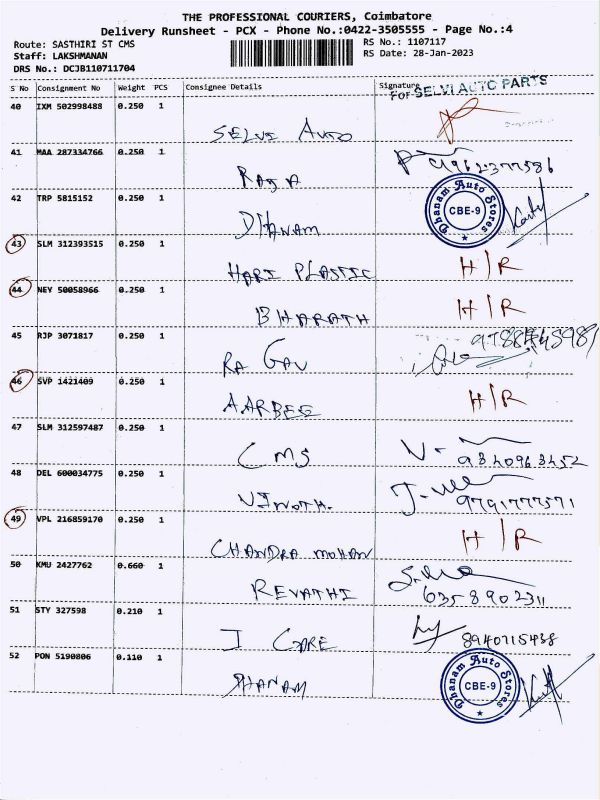 THE PROFESSIONAL COURIERS, Coimbatore
Delivery Runsheet - PCX - Phone No.:0422-3505555 - Page No.:4
Route: SASTHIRI ST CMS RS No.: 1107117
Staff: LAKSHMANAN RS Date: 28-Jan-2023
DRS No.: DCJB110711704
S No Consignment No Weight PCS Consignee Details Signature
For SELVI AUTO PARTS
40 IXM 502998488 0.250 1
SELVI AUTO
41 MAA 287334766 0.250 1
RAJA 9196237758 6
42 TRP 5815152 0.250 1
DHANAM Dhanam Auto Stores CBE-9
43 SLM 312393515 0.250 1
HARI PLASTIC H/R
44 NEY 50058966 0.250 1
BHARATH H/R
45 RJP 3071817 0.250 1
RAGAV
46 SVP 1421409 0.250 1
AARBEE H/R
47 SLM 312597487 0.250 1
CMS 9840963452
48 DEL 600034775 0.250 1
VINOTH. 9791777571
49 VPL 216859170 0.250 1
CHANDRA MOHAN H/R
50 KMU 2427762 0.660 1
REVATHI 6358902311
51 STY 327598 0.210 1
I CARE 8940715438
52 PON 5190806 0.110 1
DHANAM Dhanam Auto Stores CBE-9